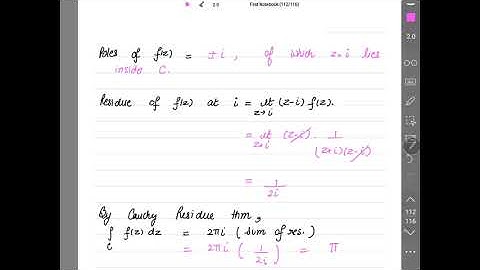 2.0
First Notebook (112/116)
Poles of f(z) = ± i, of which z=i lies
inside C.
Residue of f(z) at i = lt z→i (z-i) f(z).
= lt z→i (z-i) 1/(z+i)(z-i)
= 1/2i
By Cauchy Residue thm,
∫c f(z) dz = 2πi (sum of res.)
= 2πi (1/2i) = π
2.0
112
116